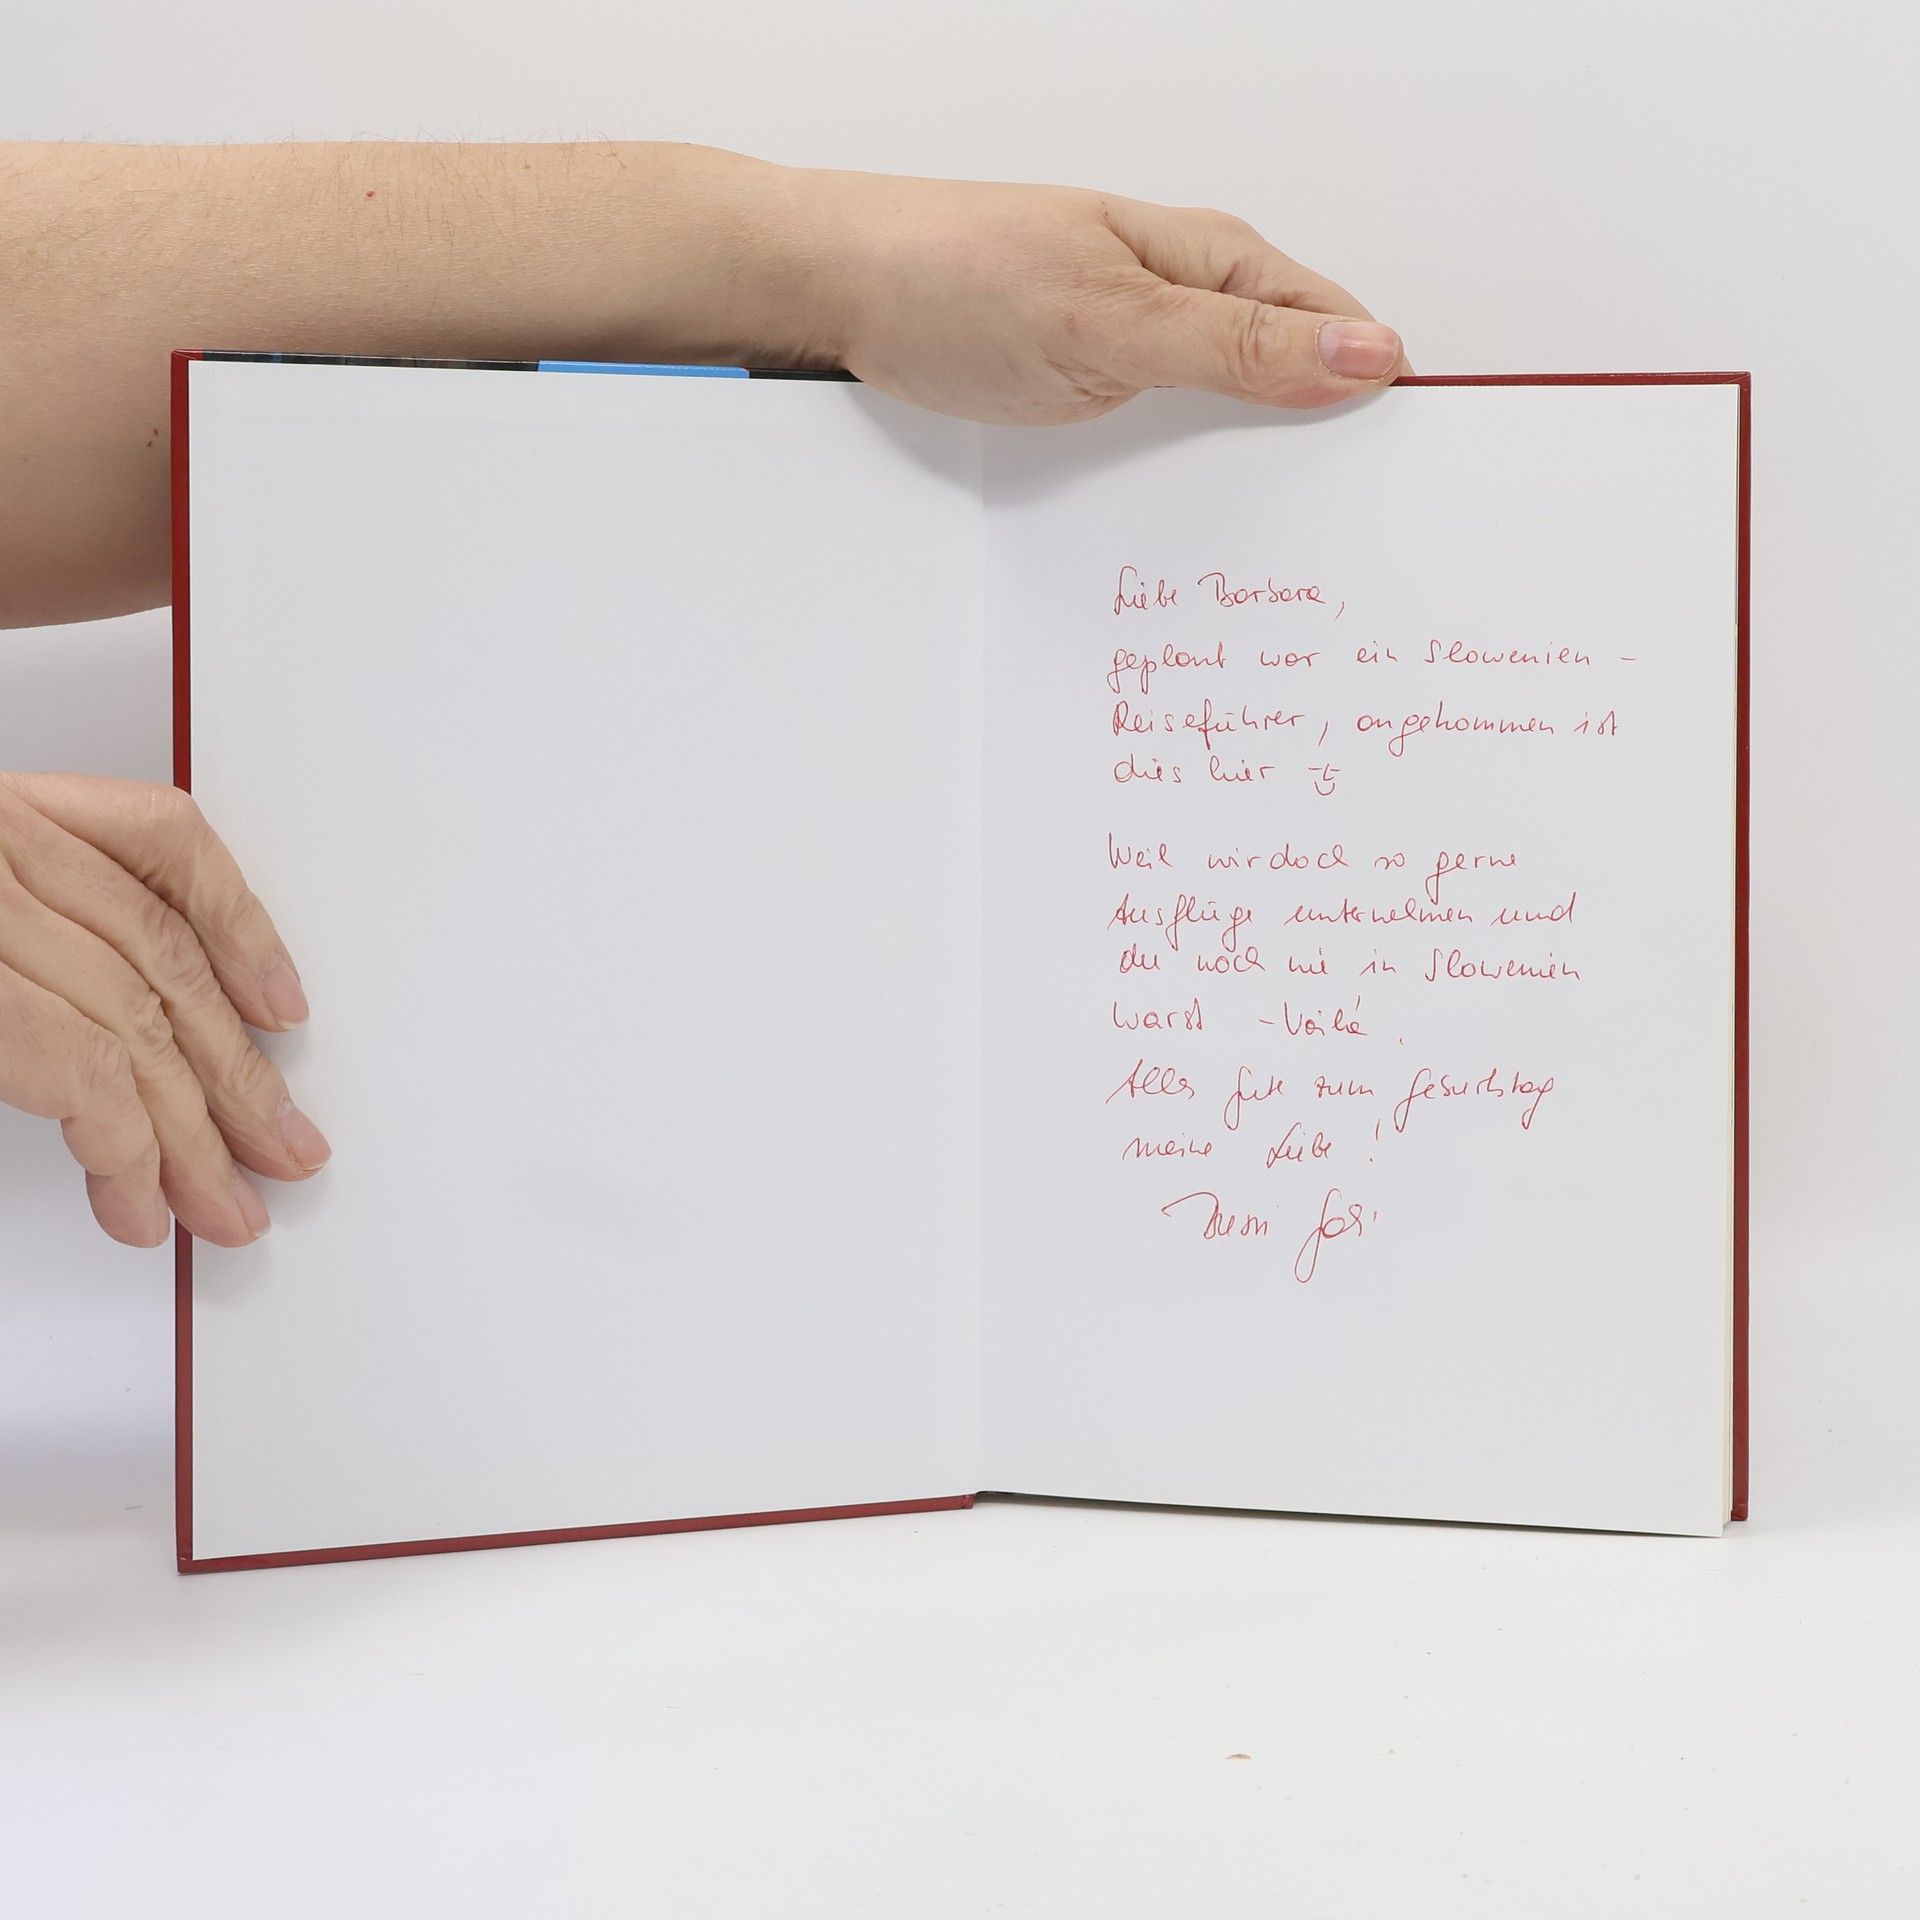 Liebe Barbara,
geplant war ein Slowenien -
Reiseführer, angekommen ist
dies hier
Weil wir doch so gerne
Ausflüge unternehmen und
du noch nie in Slowenien
warst - Voilá.
Alles Gute zum Geburtstag
meine Liebe!